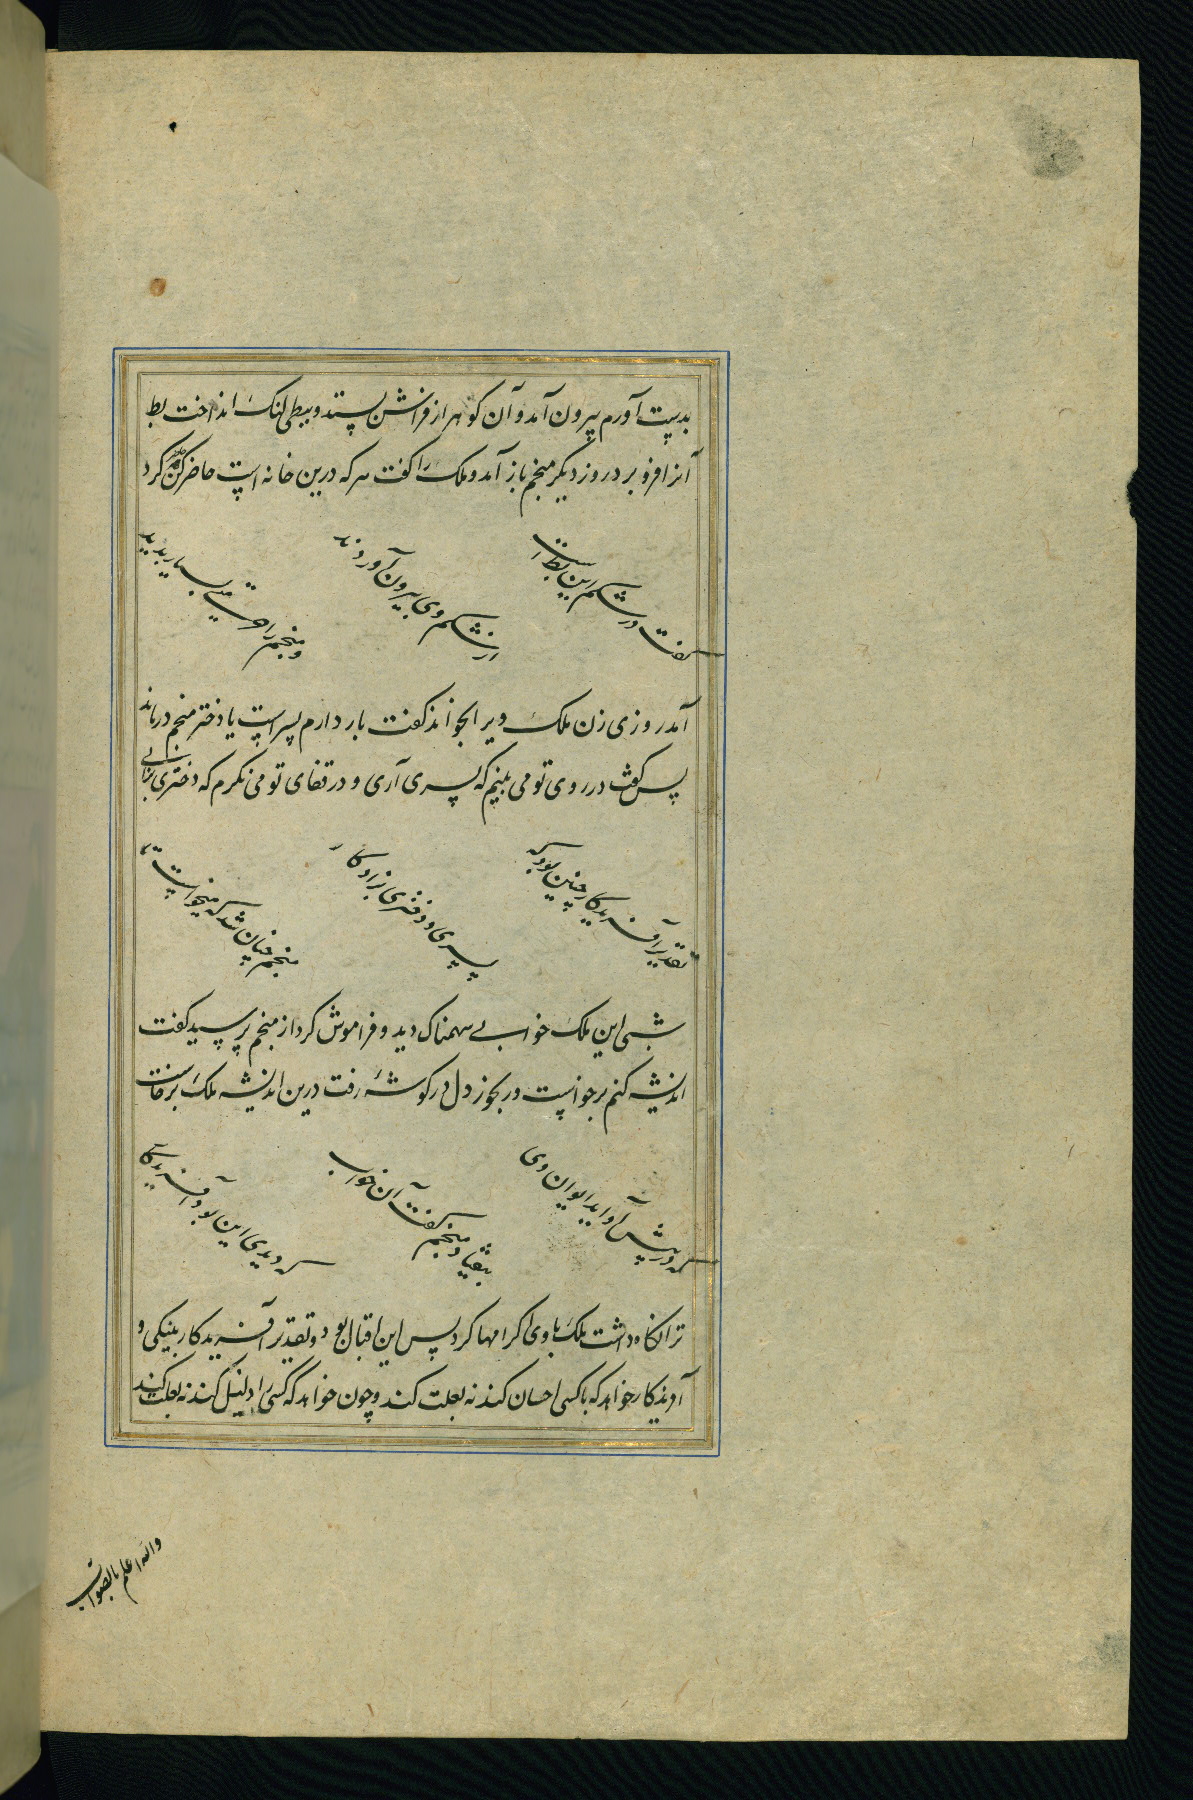 بدست آورم بیرون آمد و آن گوهر از فراش بستد و ببطی لنگ انداخت بط
آنرا فرو برد روز دیگر منجم باز آمد و ملک را گفت هر که درین خانه است حاضر کن کرد
گفت در شکم این بط است
از شکم وی بیرون آوردند
و منجم را حقیقت بسیار پدید
آمد روزی زن ملک ویرا بخواند گفت بار دارم پسر است یا دختر منجم درماند
پس گفت در روی تو می بینم که پسری آری و در قفای تو می نگرم که دختری زایی
تقدیر آفریدگار چنین بود که
پسری و دختری بزاد کار
منجم چنان شد که میخواست تا
شبی این ملک خوابی سهمناک دید و فراموش کرد از منجم پرسید گفت
اندیشه کنم برخواست و رنجور دل در گوشهٔ رفت درین اندیشه ملک برخاست
که درپیش آواید ایوان وی
بیفتاد منجم گفت آن خواب
که دیدی این بود آفریدگار
ترا نگاه داشت ملک با وی اکرامها کرد پس این اقبال بود و تقدیر آفریدگار بنیکی و
آفریدگار خواهد که با کسی احسان کند نه بعلت کند و چون خواهد که کسی را ذلیل کند نه بعلت کند
والله اعلم بالصواب